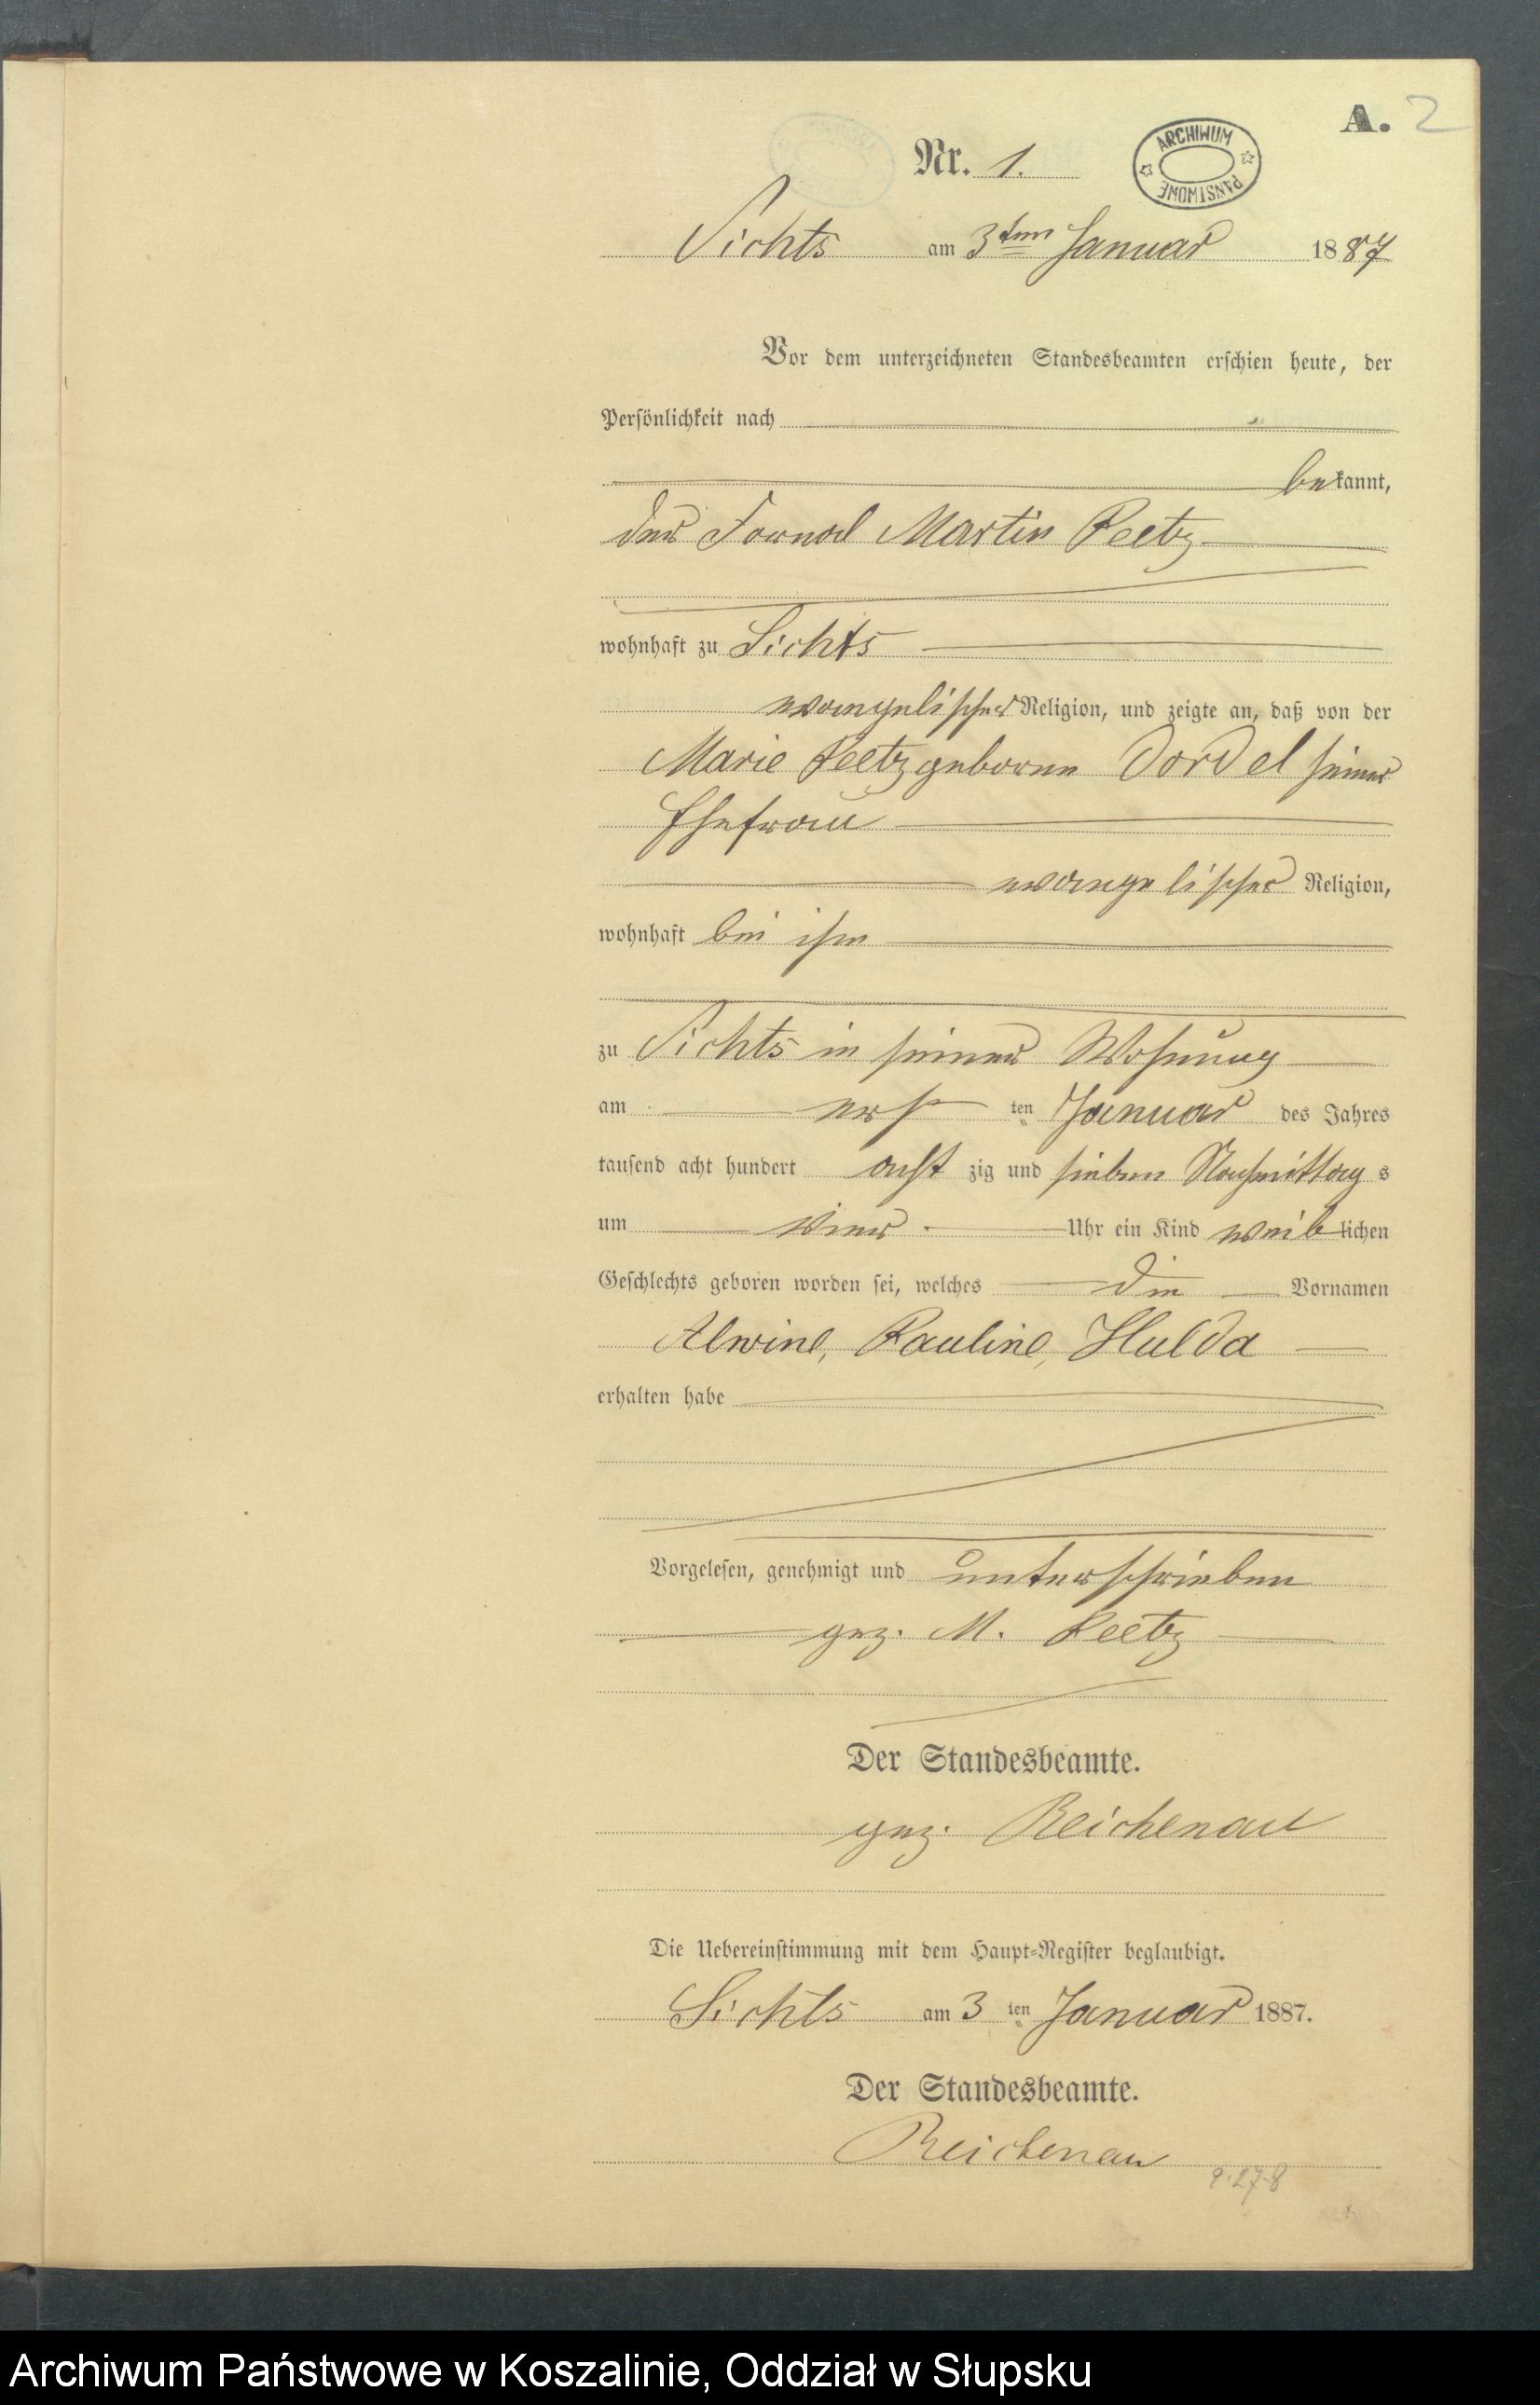 A. 2
ARCHIWUM PAŃSTWOWE
Nr. 1.
Sichts am 3ten Januar 1887
Vor dem unterzeichneten Standesbeamten erschien heute, der
Persönlichkeit nach
bekannt,
der Martin Reetz
wohnhaft zu Sichts
evangelischer Religion, und zeigte an, daß von der
Marie Reetz geborene Dordel seiner
Ehefrau
evangelischer Religion,
wohnhaft bei ihm
zu Sichts in seiner Wohnung
am ersten Januar des Jahres
tausend acht hundert achtzig und sieben Nachmittags
um vier Uhr ein Kind weiblichen
Geschlechts geboren worden sei, welches die Vornamen
Alwine, Pauline, Hulda
erhalten habe
Vorgelesen, genehmigt und unterschrieben
gez. M. Reetz
Der Standesbeamte.
gez. Reichenau
Die Uebereinstimmung mit dem Haupt-Register beglaubigt.
Sichts am 3ten Januar 1887.
Der Standesbeamte.
Reichenau
Archiwum Państwowe w Koszalinie, Oddział w Słupsku